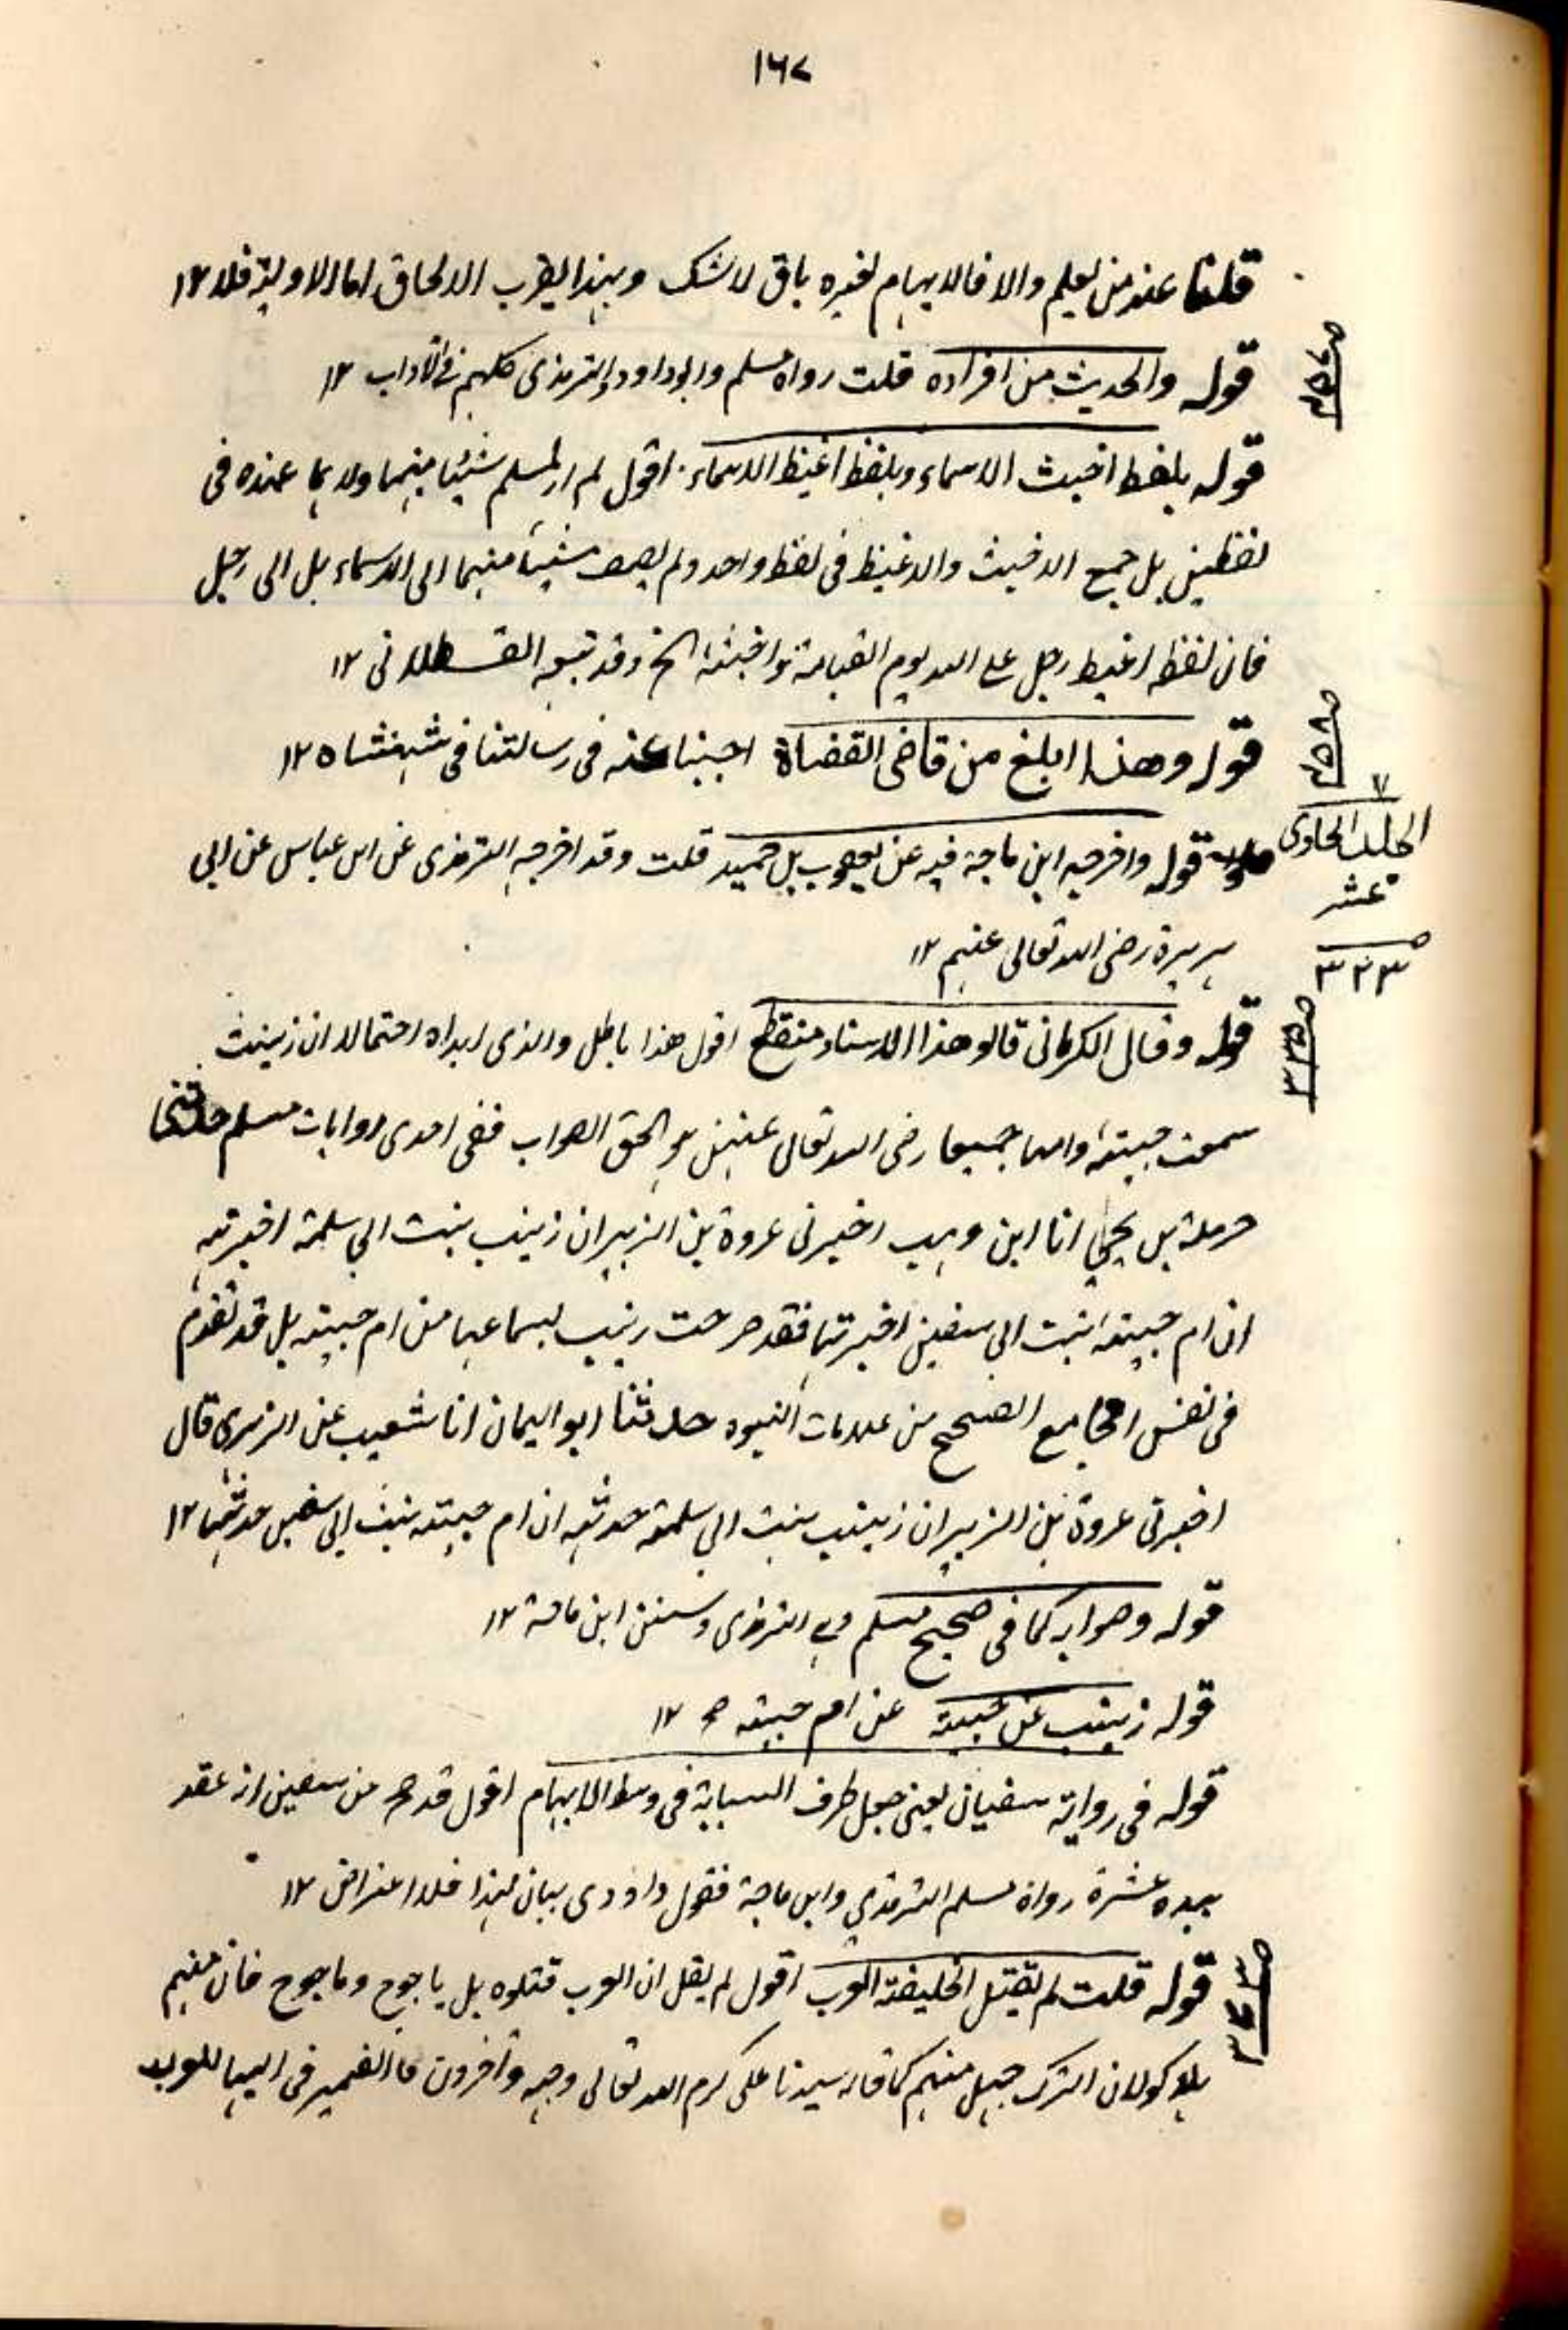 ١٦٧
قلنا عند من يعلم والا فالابهام لغيره باق لا شك وبهذا يقرب الالحاق اما الاولية فلا ١٢
قوله والحديث من افراده قلت رواه مسلم وابوداود والترمذى كلهم فى الآداب ١٢
قوله بلفظ اخبث الاسماء وبلفظ اغيظ الاسماء اقول لم ار لمسلم شيئا منهما ولا هما عنده فى
لفظين بل جمع الاخبث والاغيظ فى لفظ واحد ولم يضف شيئا منهما الى الاسماء بل الى رجل
فان لفظه اغيظ رجل على الله يوم القيامة واخبثه الخ وقد تبعه القسطلانى ١٢
قوله وهذا ابلغ من قاضى القضاة اجبنا عنه فى رسالتنا فى شهنشاه ١٢
الجلد الحادى
عشر
٣٢٣
قوله واخرجه ابن ماجة فيه عن يعقوب بن حميد قلت وقد اخرجه الترمذى عن ابن عباس عن ابى
هريرة رضى الله تعالى عنهم ١٢
قوله وقال الكرمانى قالو هذا الاسناد منقطع اقول هذا باطل والذى ابداه احتمالا ان زينب
سمعت حبيبة وامها جميعا رضى الله تعالى عنهن هو الحق الصواب ففى احدى روايات مسلم حدثنى
حرملة بن يحيى انا ابن وهب اخبرنى عروة بن الزبير ان زينب بنت ابى سلمة اخبرته
ان ام حبيبة بنت ابى سفين اخبرتها فقد صرحت زينب بسماعها من ام حبيبة بل قد تقدم
فى نفس الجامع الصحيح من علامات النبوه حدثنا ابو اليمان انا شعيب عن الزهرى قال
اخبرنى عروة بن الزبير ان زينب بنت ابى سلمة حدثته ان ام حبيبة بنت ابى سفين حدثتها ١٢
قوله وصوابه كما فى صحيح مسلم والترمذى وسنن ابن ماجة ١٢
قوله زينب عن حبيبة عن ام حبيبة صح ١٢
قوله فى رواية سفيان يعنى جعل طرف السبابة فى وسط الابهام اقول قد صح من سفين انه عقد
بيده عشرة رواه مسلم الترمذي وابن ماجة فقول داودى بيان لهذا فلا اعتراض ١٢
قوله قلت لم يقتل الخليفة العرب اقول لم يقل ان العرب قتلوه بل ياجوج وماجوج فان منهم
هلاكو لان الترك جيل منهم كما قاله سيدنا على كرم الله تعالى وجهه وآخرون فالضمير فى اليها للعرب